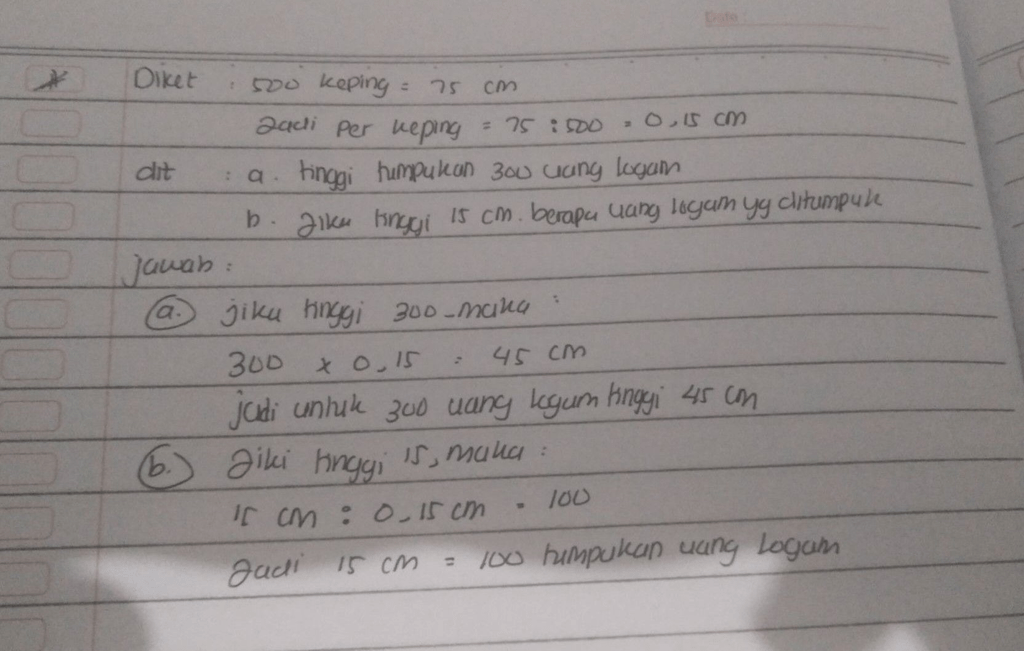 Date :
Diket : 500 keping = 75 cm
Jadi per keping = 75 : 500 = 0,15 cm
dit : a. tinggi tumpukan 300 uang logam
b. Jika tinggi 15 cm. berapa uang logam yg ditumpuk
jawab :
a. jika tinggi 300 - maka :
300 x 0,15 = 45 cm
jadi untuk 300 uang logam tinggi 45 cm
b. Jiki tinggi 15, maka :
15 cm : 0,15 cm = 100
Jadi 15 cm = 100 tumpukan uang logam